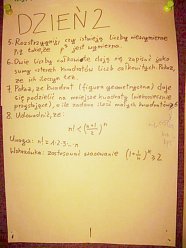 DZIEŃ 2
5. Rozstrzygnij czy istnieją liczby niewymierne
p,q takie, że p^q jest wymierna.
6. Dwie liczby całkowite dają się zapisać jako
sumy czterech kwadratów liczb całkowitych. Pokaż,
że ich iloczyn też.
7. Pokaż, że kwadrat (figurę geometryczną) daje
się podzielić na mniejsze kwadraty (niekoniecznie
przystające), o ile żądana ilość małych kwadratów
8. Udowodnić, że:
n! < (n+1/2)^n
Uwaga: n! = 1·2·3·...·n
Wskazówka: zastosować szacowanie (1+1/n)^n ≥ 2